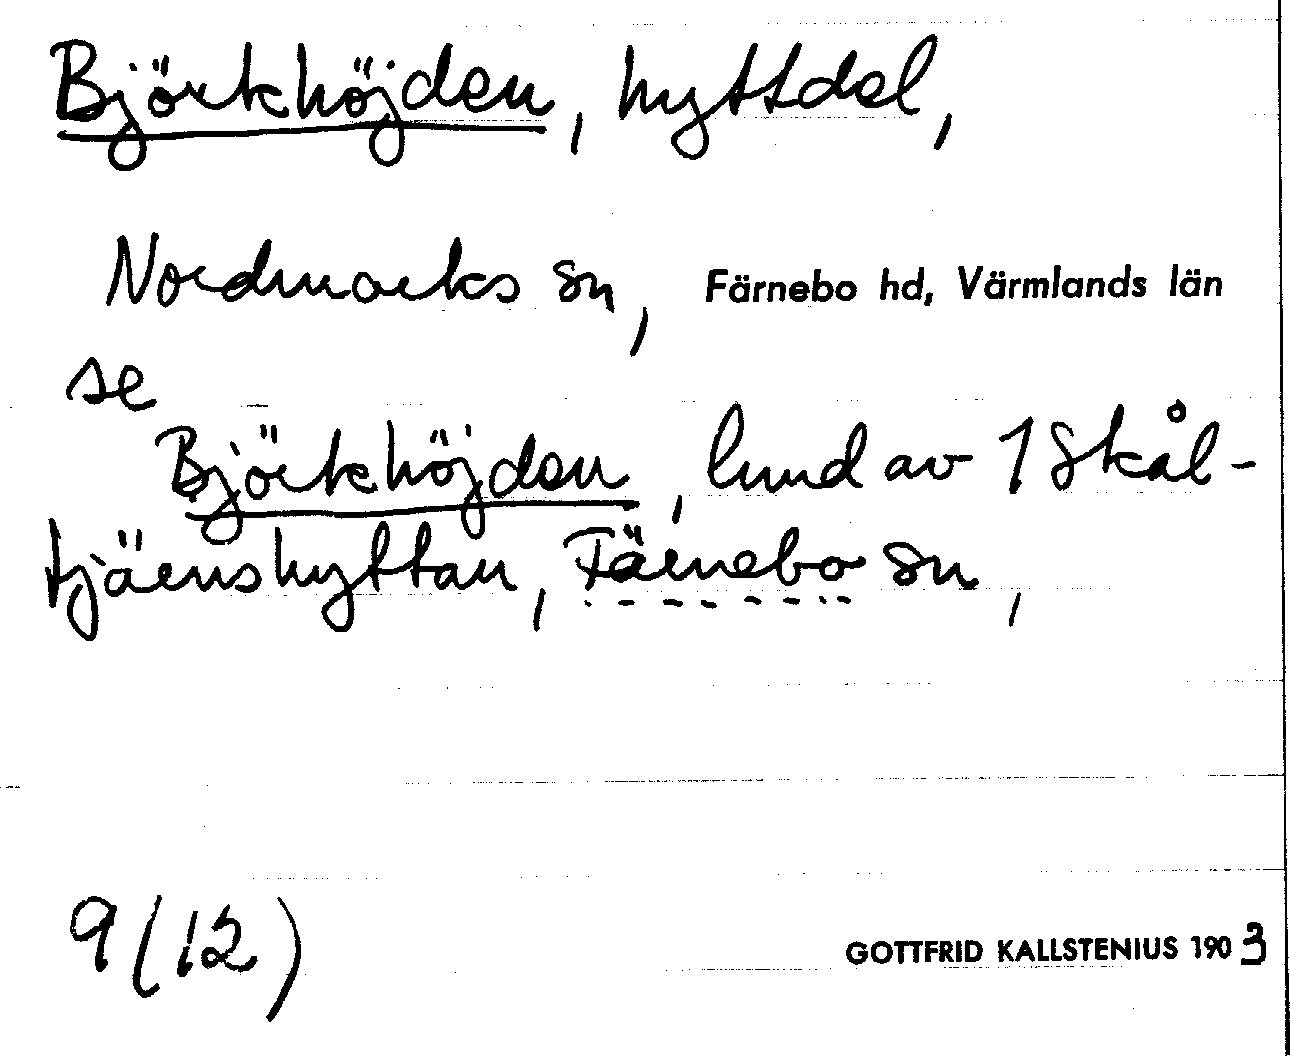 Björkhöjden, hyttdel,
Nordmarks sn, Färnebo hd, Värmlands län
se
Björkhöjden, lund av 1 Skål-
tjärnshyttan, Färnebo sn,
9(12) GOTTFRID KALLSTENIUS 1903